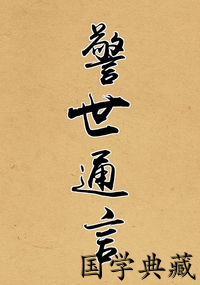 警世通言
国学典藏